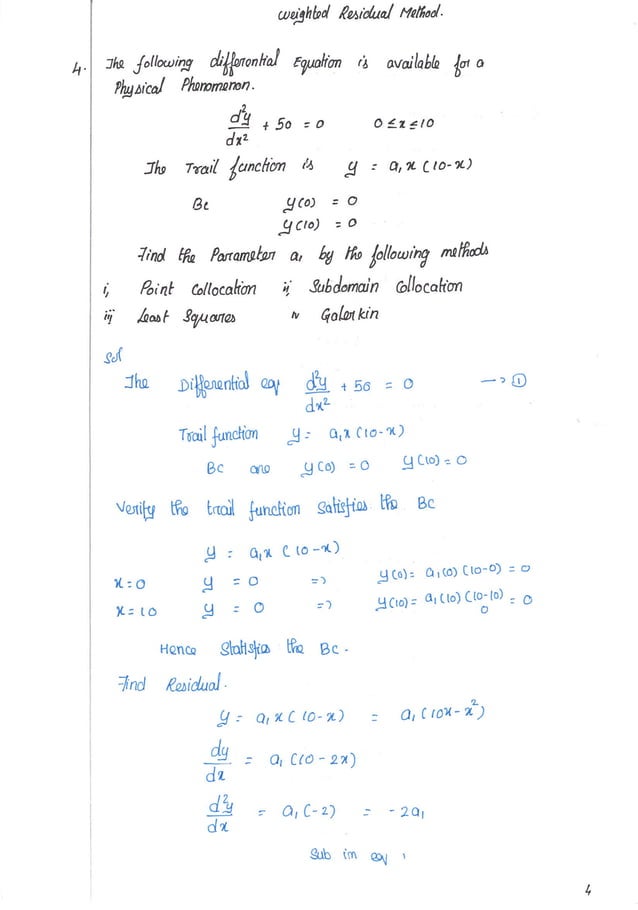 Weighted Residual Method.
4. The following differential Equation is available for a
Physical Phenomenon.
d²y/dx² + 50 = 0 0 ≤ x ≤ 10
The Trail function is y = a₁x (10-x)
Bc y(0) = 0
y(10) = 0
Find the Parameter a₁ by the following methods
i, Point Collocation ii, Subdomain Collocation
iii, Least Squares iv Galerkin
Sol
The Differential eqn d²y/dx² + 50 = 0 → ①
Trail function y = a₁x (10-x)
Bc are y(0) = 0 y(10) = 0
Verify the trail function Satisfies the Bc
y = a₁x (10-x)
x=0 y = 0 => y(0) = a₁(0) (10-0) = 0
x=10 y = 0 => y(10) = a₁(10) (10-10) = 0
0
Hence Statisfies the Bc.
Find Residual.
y = a₁x (10-x) = a₁ (10x-x²)
dy/dx = a₁ (10 - 2x)
d²y/dx = a₁ (-2) = -2a₁
Sub in eqn 1
4